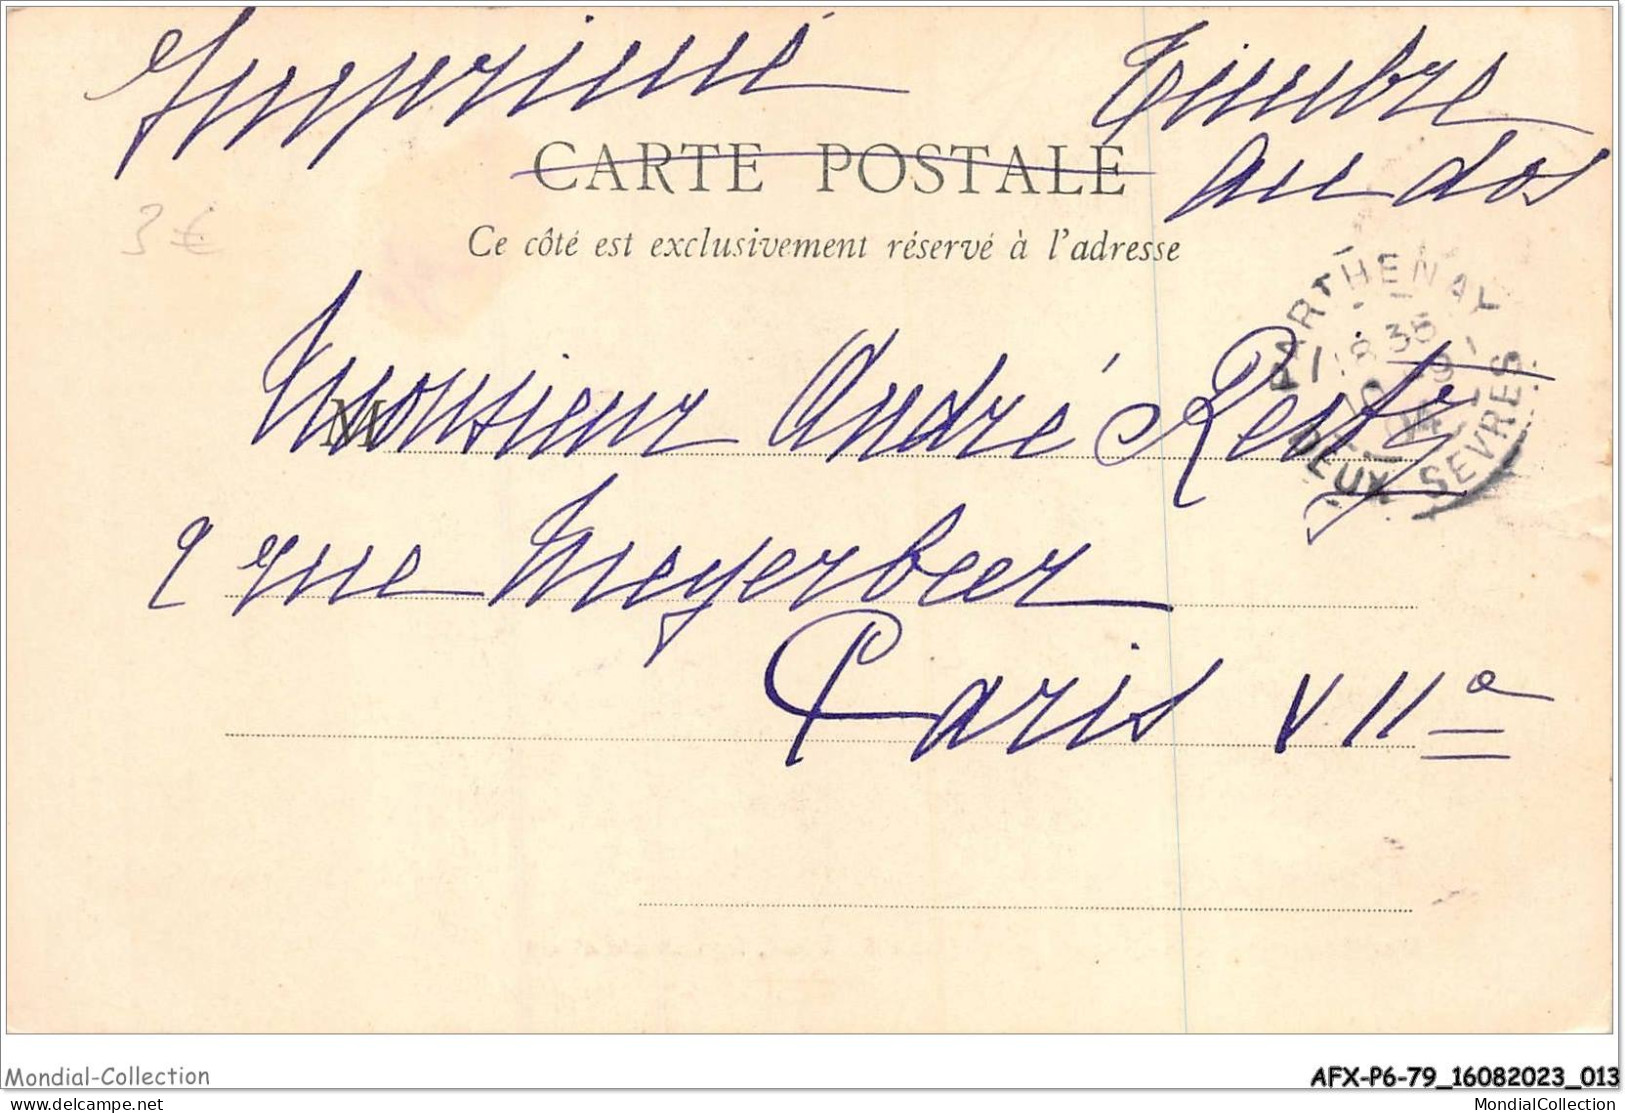 Imprimé
Timbre
au dos
CARTE POSTALE
3 €
Ce côté est exclusivement réservé à l'adresse
PARTHENAY
18 35
10
04
DEUX SEVRES
M
Monsieur André
rue Meyerbeer
Paris VIIe
Mondial-Collection
AFX-P6-79_16082023_013
delcampe.net
MondialCollection